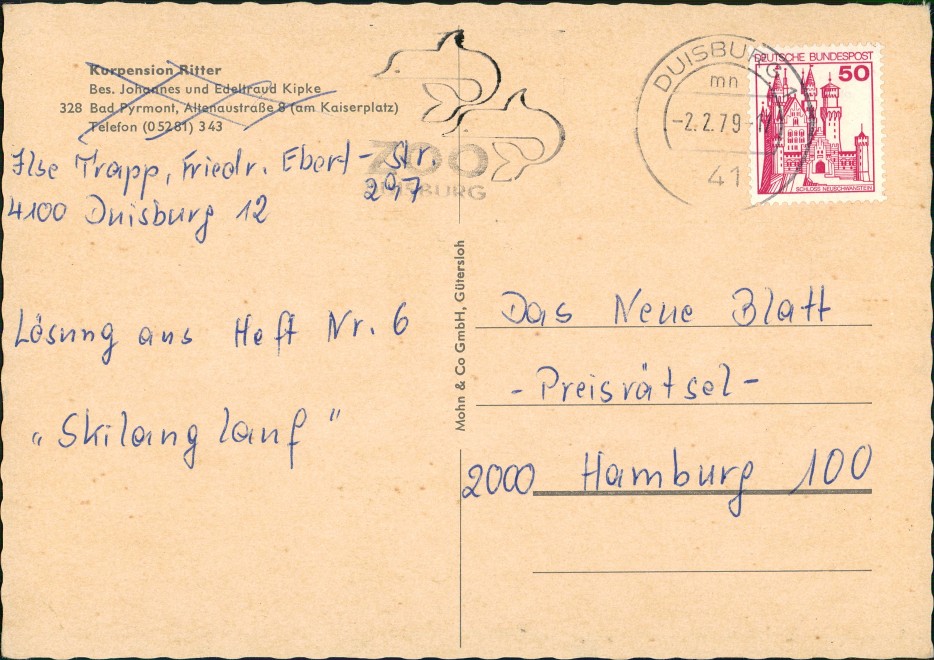 Kurpension Ritter
Bes. Johannes und Edeltraud Kipke
328 Bad Pyrmont, Altenaustraße 8 (am Kaiserplatz)
Telefon (05281) 343
Ilse Trapp, Friedr. Ebert-Str.
297
4100 Duisburg 12
Lösung aus Heft Nr. 6
"Skilanglauf"
ZOO
DUISBURG
Mohn & Co GmbH, Gütersloh
DUISBURG
mn
-2.2.79
41
DEUTSCHE BUNDESPOST
50
SCHLOSS NEUSCHWANSTEIN
Das Neue Blatt
- Preisrätsel -
2000 Hamburg 100